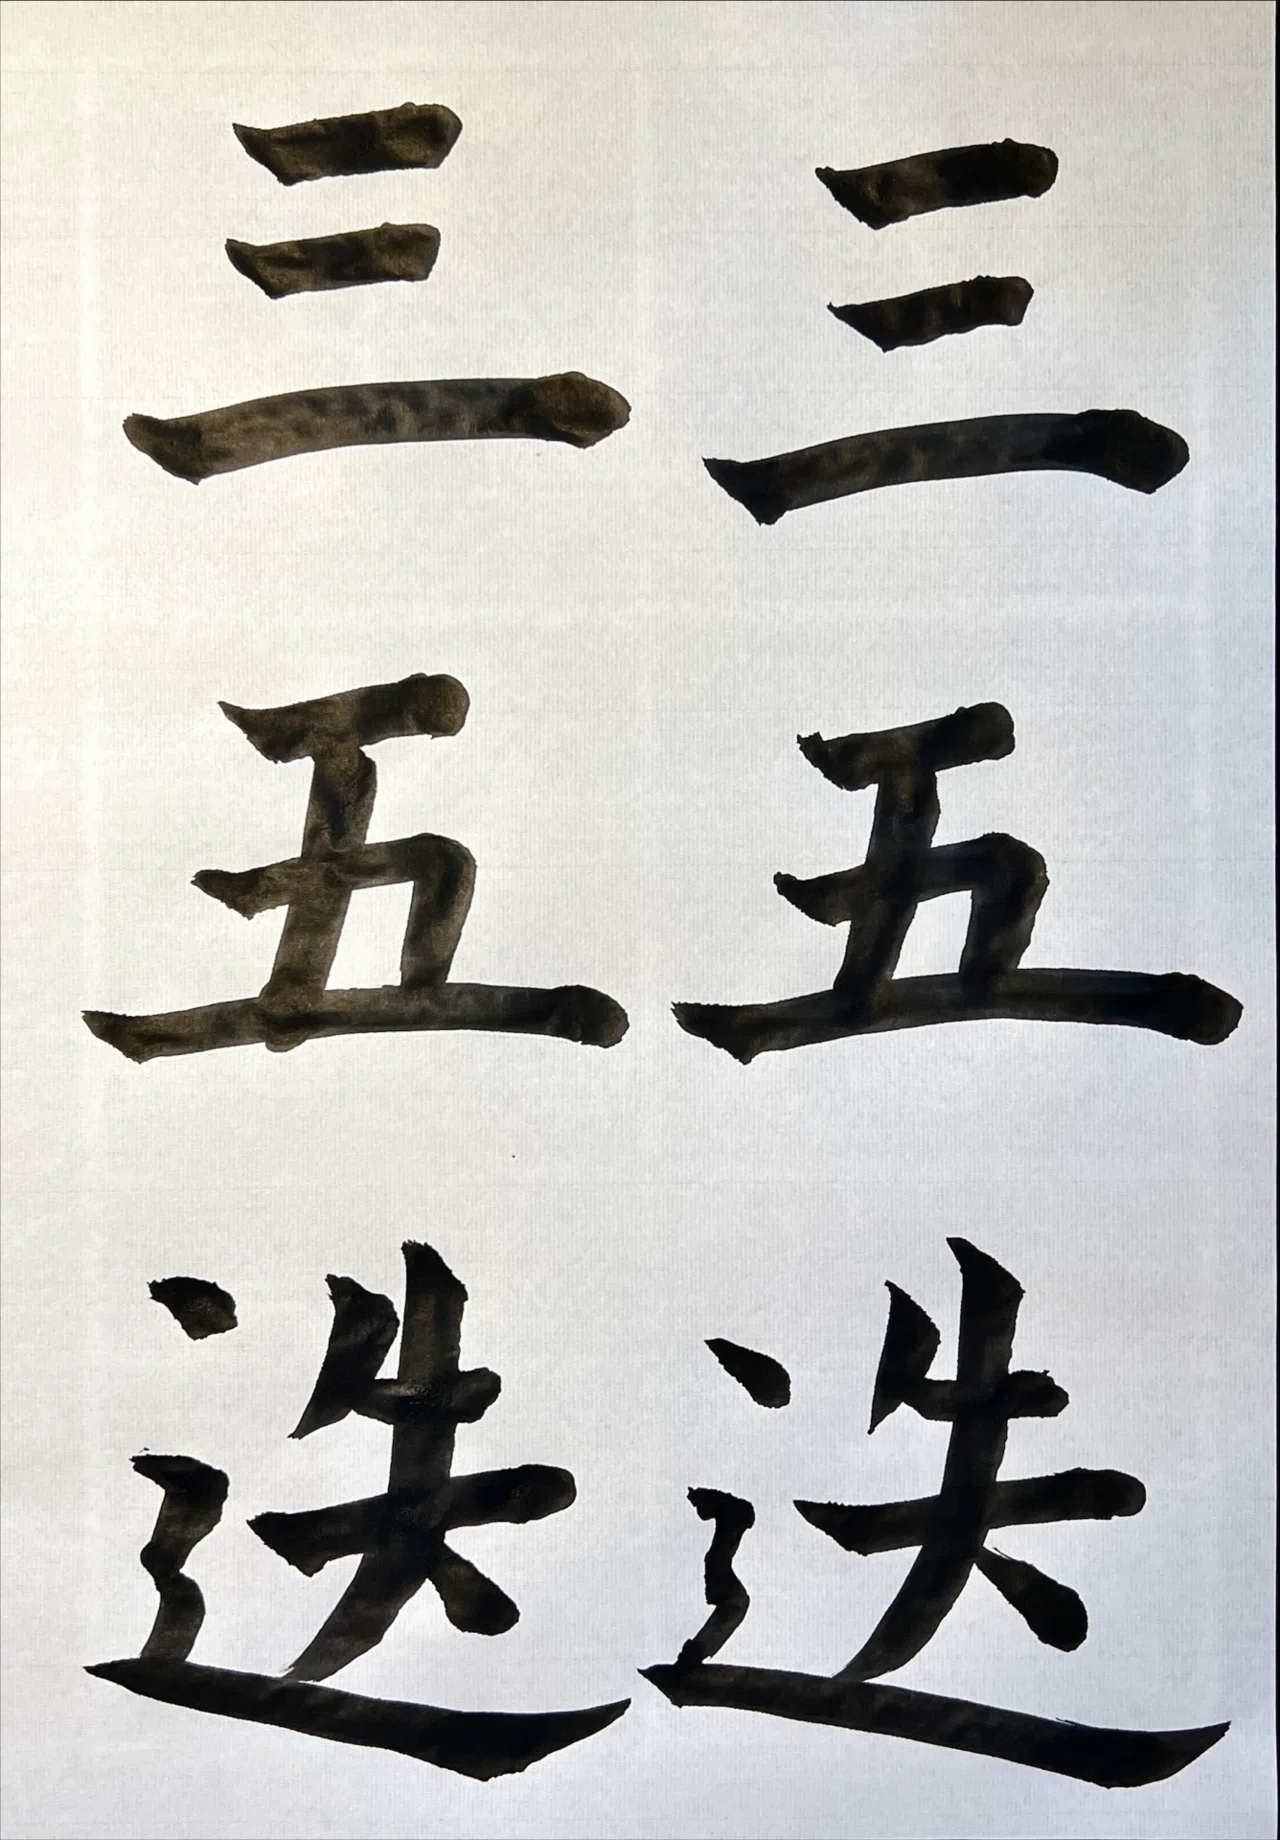 三五迭
三五迭